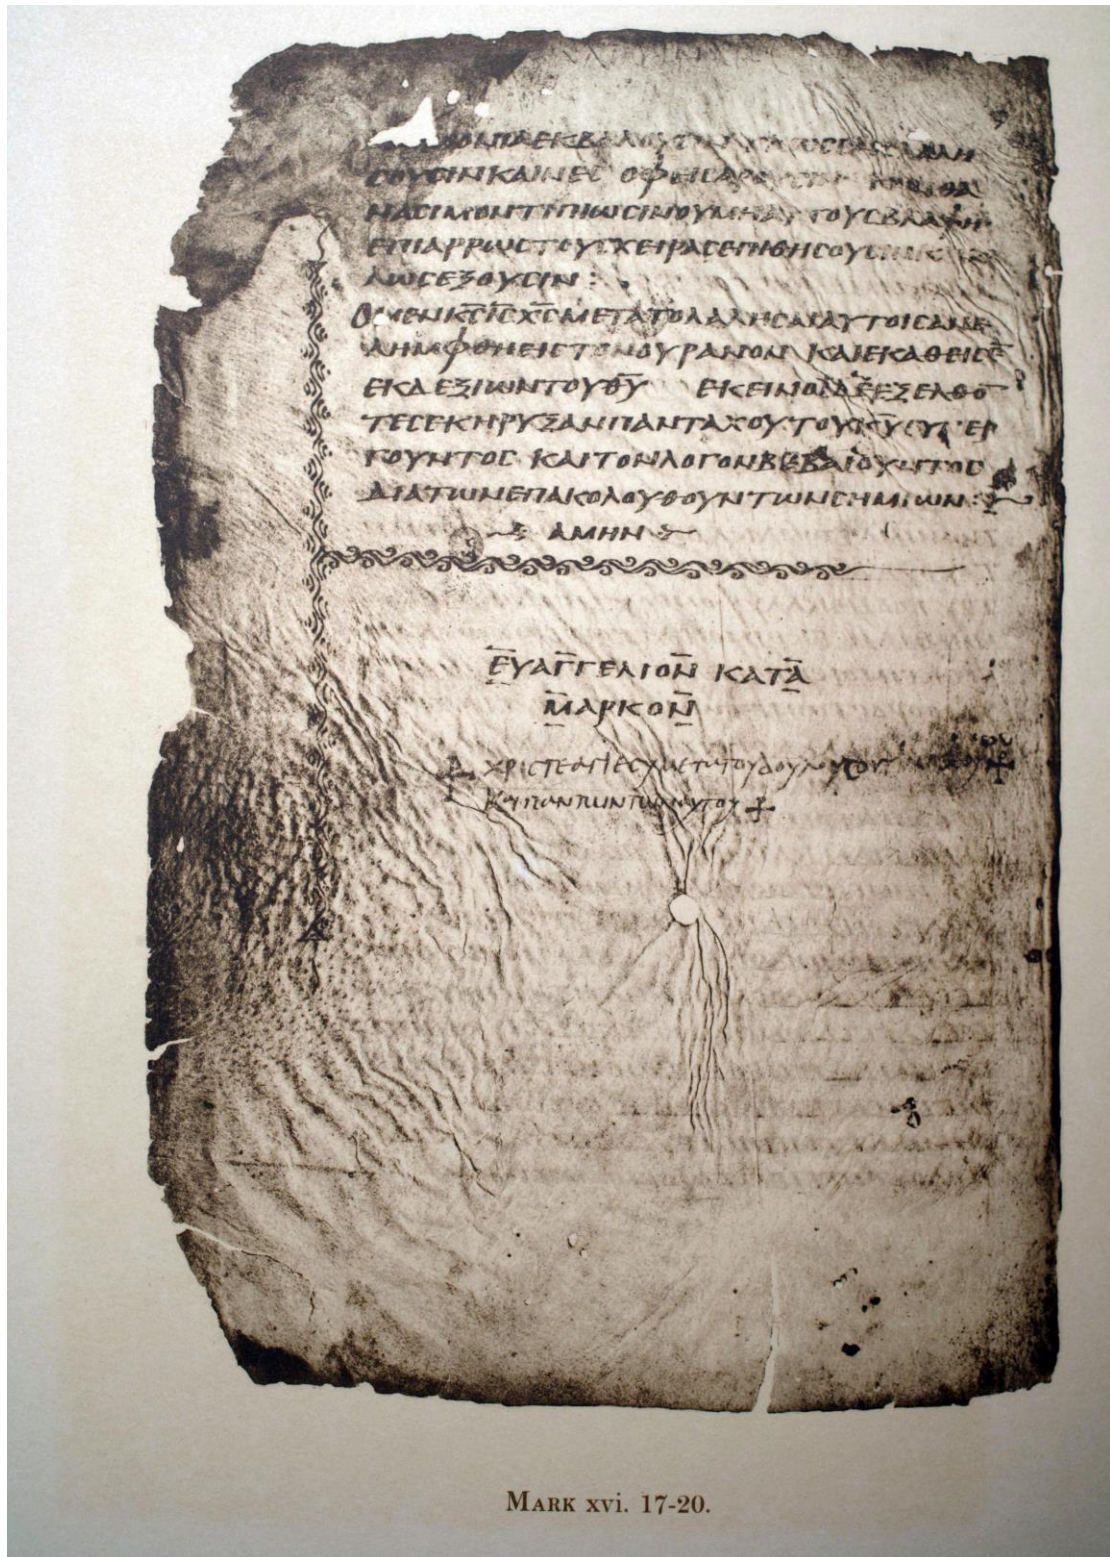 ΕΚΒΑΛΟΥϹΙΝ ΛΑΛΗ
ϹΟΥϹΙΝΚΑΙΝΕϹ ΟΦΕΙϹΑΡΟΥϹΙΝ ΘΑ
ΝΑϹΙΜΟΝΤΙΠΙΩϹΙΝΟΥΜΗΑΥΤΟΥϹΒΛΑΨΗ
ΕΠΙΑΡΡΩϹΤΟΥϹΧΕΙΡΑϹΕΠΙΘΗϹΟΥϹΙΝΚ
ΛΩϹΕΞΟΥϹΙΝ :
ΟΜΕΝΚ̅Ϲ̅Ι̅Ϲ̅Χ̅Ϲ̅ΜΕΤΑΤΟΛΑΛΗϹΑΙΑΥΤΟΙϹΑΝΕ
ΛΗΜΦΘΗΕΙϹΤΟΝΟΥΡΑΝΟΝ ΚΑΙΕΚΑΘΕΙϹΕ̅
ΕΚΔΕΞΙΩΝΤΟΥΘ̅Υ̅ ΕΚΕΙΝΟΙΔΕΕΞΕΛΘΟ̅
ΤΕϹΕΚΗΡΥΞΑΝΠΑΝΤΑΧΟΥΤΟΥΚ̅Υ̅ϹΥΝΕΡ
ΓΟΥΝΤΟϹ ΚΑΙΤΟΝΛΟΓΟΝΒΕΒΑΙΟΥΝΤΟϹ
ΔΙΑΤΩΝΕΠΑΚΟΛΟΥΘΟΥΝΤΩΝϹΗΜΙΩΝ:
ΑΜΗΝ
ΕΥΑΓΓΕΛΙΟΝ ΚΑΤΑ
ΜΑΡΚΟΝ
ΧΡΙϹΤΕ
MARK xvi. 17-20.